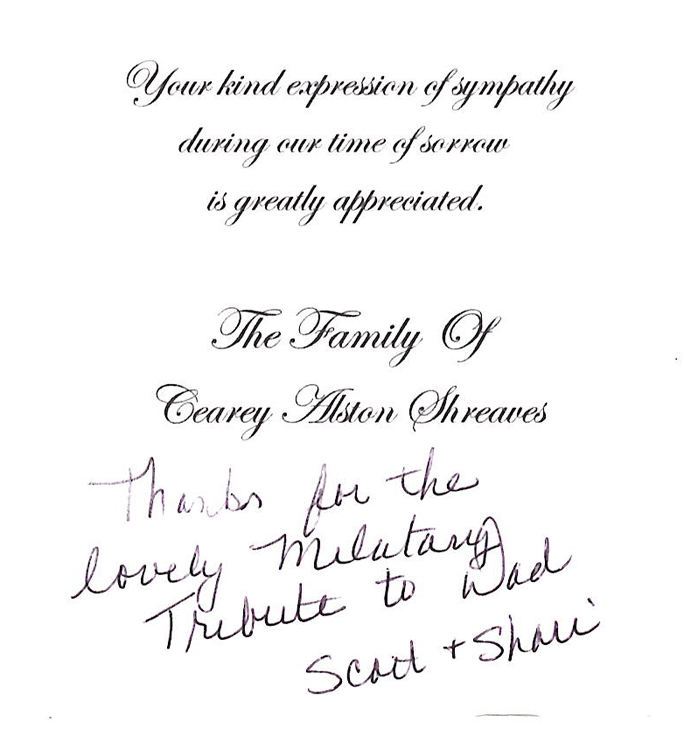 Your kind expression of sympathy
during our time of sorrow
is greatly appreciated.
The Family Of
Cearey Alston Shreaves
Thanks for the
lovely Milatary
Tribute to Dad
Scott + Shari